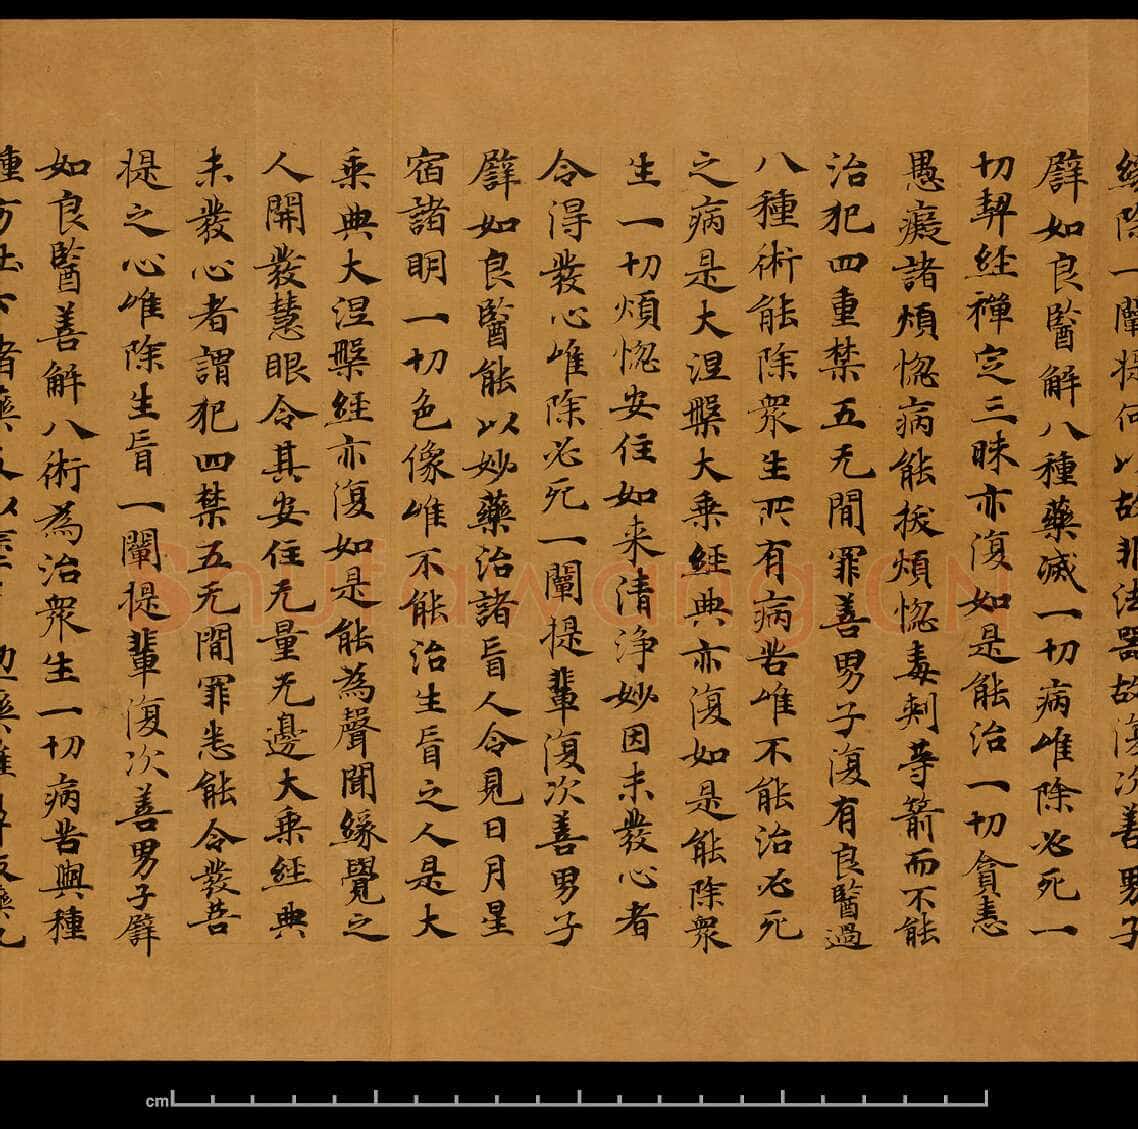 緣除一闡提何以故非法器故復次善男子
譬如良醫解八種藥滅一切病唯除必死一
切契經禪定三昧亦復如是能治一切貪恚
愚癡諸煩惚病能拔煩惚毒刺等箭而不能
治犯四重禁五无間罪善男子復有良醫過
八種術能除眾生所有病苦唯不能治必死
之病是大涅槃大乘經典亦復如是能除眾
生一切煩惚安住如来清淨妙因未發心者
令得發心唯除必死一闡提輩復次善男子
譬如良醫能以妙藥治諸盲人令見日月星
宿諸明一切色像唯不能治生盲之人是大
乘典大涅槃經亦復如是能為聲聞緣覺之
人開發慧眼令其安住无量无邊大乘經典
未發心者謂犯四禁五无間罪悉能令發菩
提之心唯除生盲一闡提輩復次善男子譬
如良醫善解八術為治眾生一切病苦與種
種方
shufawang.CN
cm